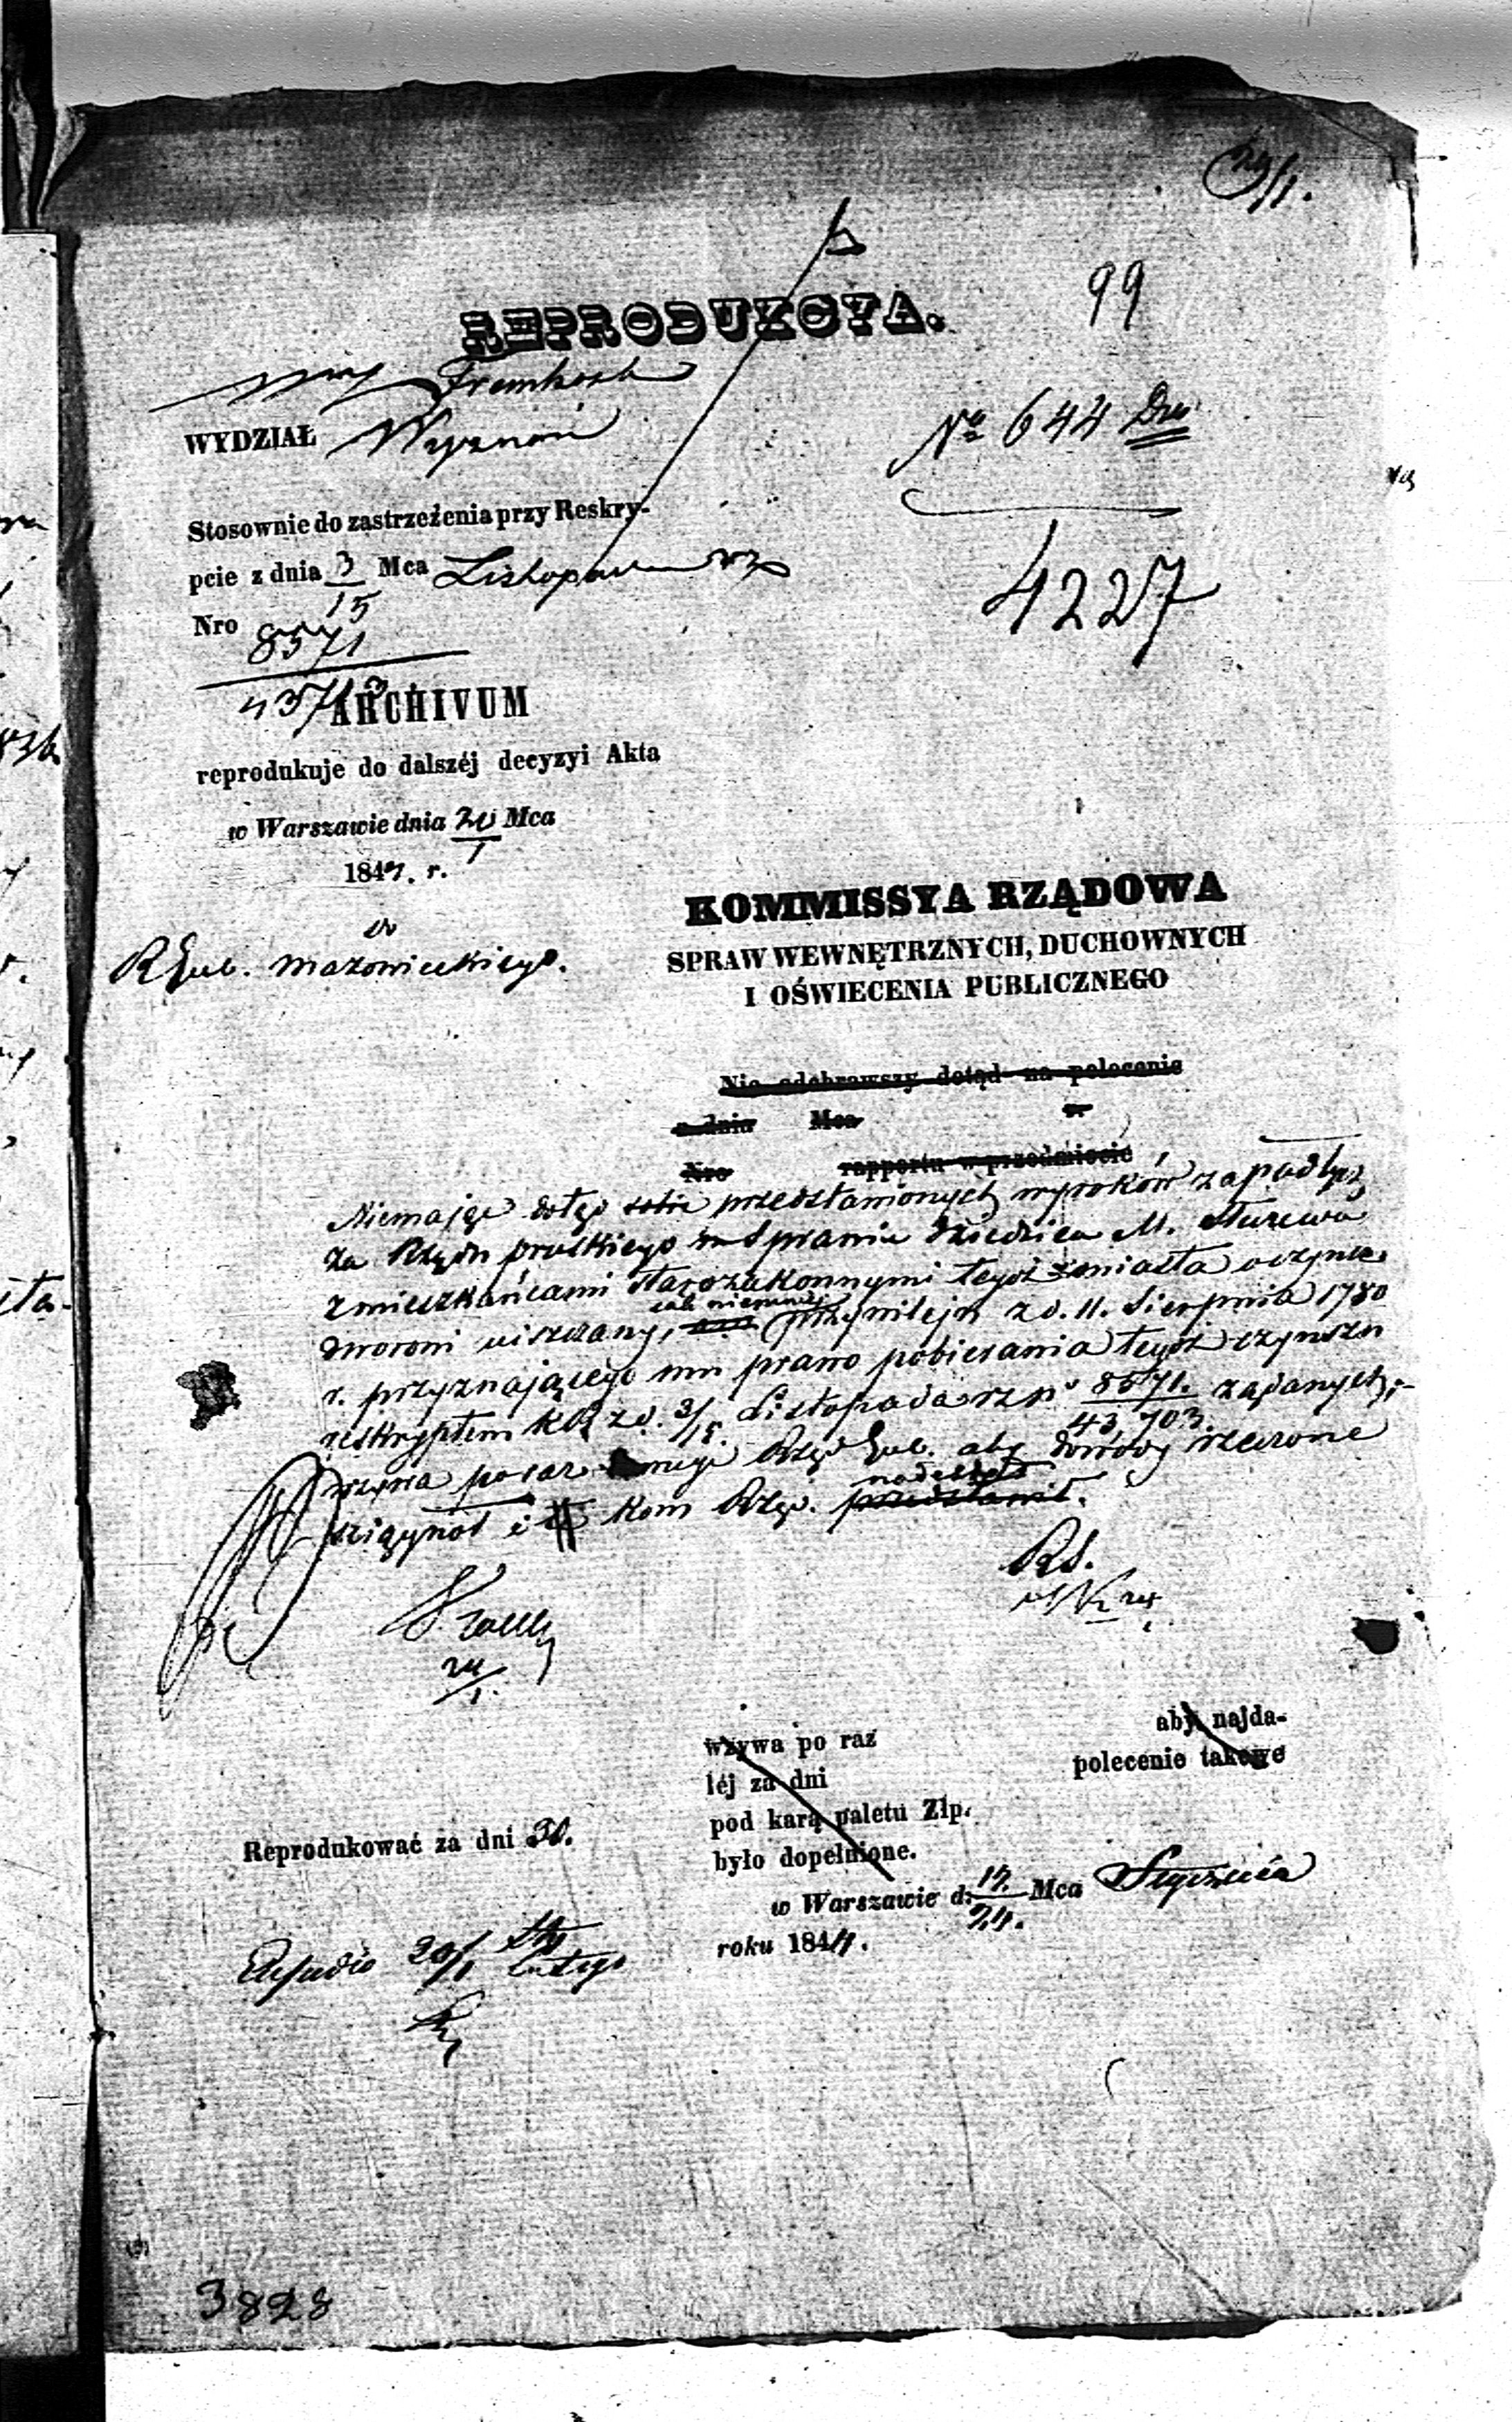 29/1.
99
REPRODUKCYA.
WYDZIAŁ Wyznań
Nº 644
4227
Stosownie do zastrzeżenia przy Reskry-
pcie z dnia 3/15 Mca Listopada
Nro 8571
43703
ARCHIVUM
reprodukuje do dalszéj decyzyi Akta
w Warszawie dnia 20/1 Mca
1844. r.
do
R Gub. Mazowieckiego.
KOMMISSYA RZĄDOWA
SPRAW WEWNĘTRZNYCH, DUCHOWNYCH
I OŚWIECENIA PUBLICZNEGO
Nie odebrawszy dotąd na polecenie
z dnia Mca r.
Nro rapportu w przedmiocie
Niemając dotąd sobie przedstawionych wyroków zapadłych
za Rządu pruskiego w Sprawie dziedzica M.
z mieszkańcami starozakonnymi tegoż miasta o czynsz
dworowi uiszczany, tak niemniej przywileju z d. 11. Sierpnia 1780
r. przyznającego mu prawo pobierania tegoż czynszu
reskryptem KRz z d. 3/15. Listopada r z n 8571./43,703. żądanych,-
wzywa po raz Rząd Gub. aby dowody rzeczone
ściągnął i Kom Rząd. nadesłał przedstawił.
24/1.
wzywa po raz aby najda-
léj za dni polecenie takowe
pod karą paletu Złp.
było dopełnione.
Reprodukować za dni 30.
w Warszawie d. 12./24. Mca Stycznia
roku 1844.
20/1 Lutego
3828